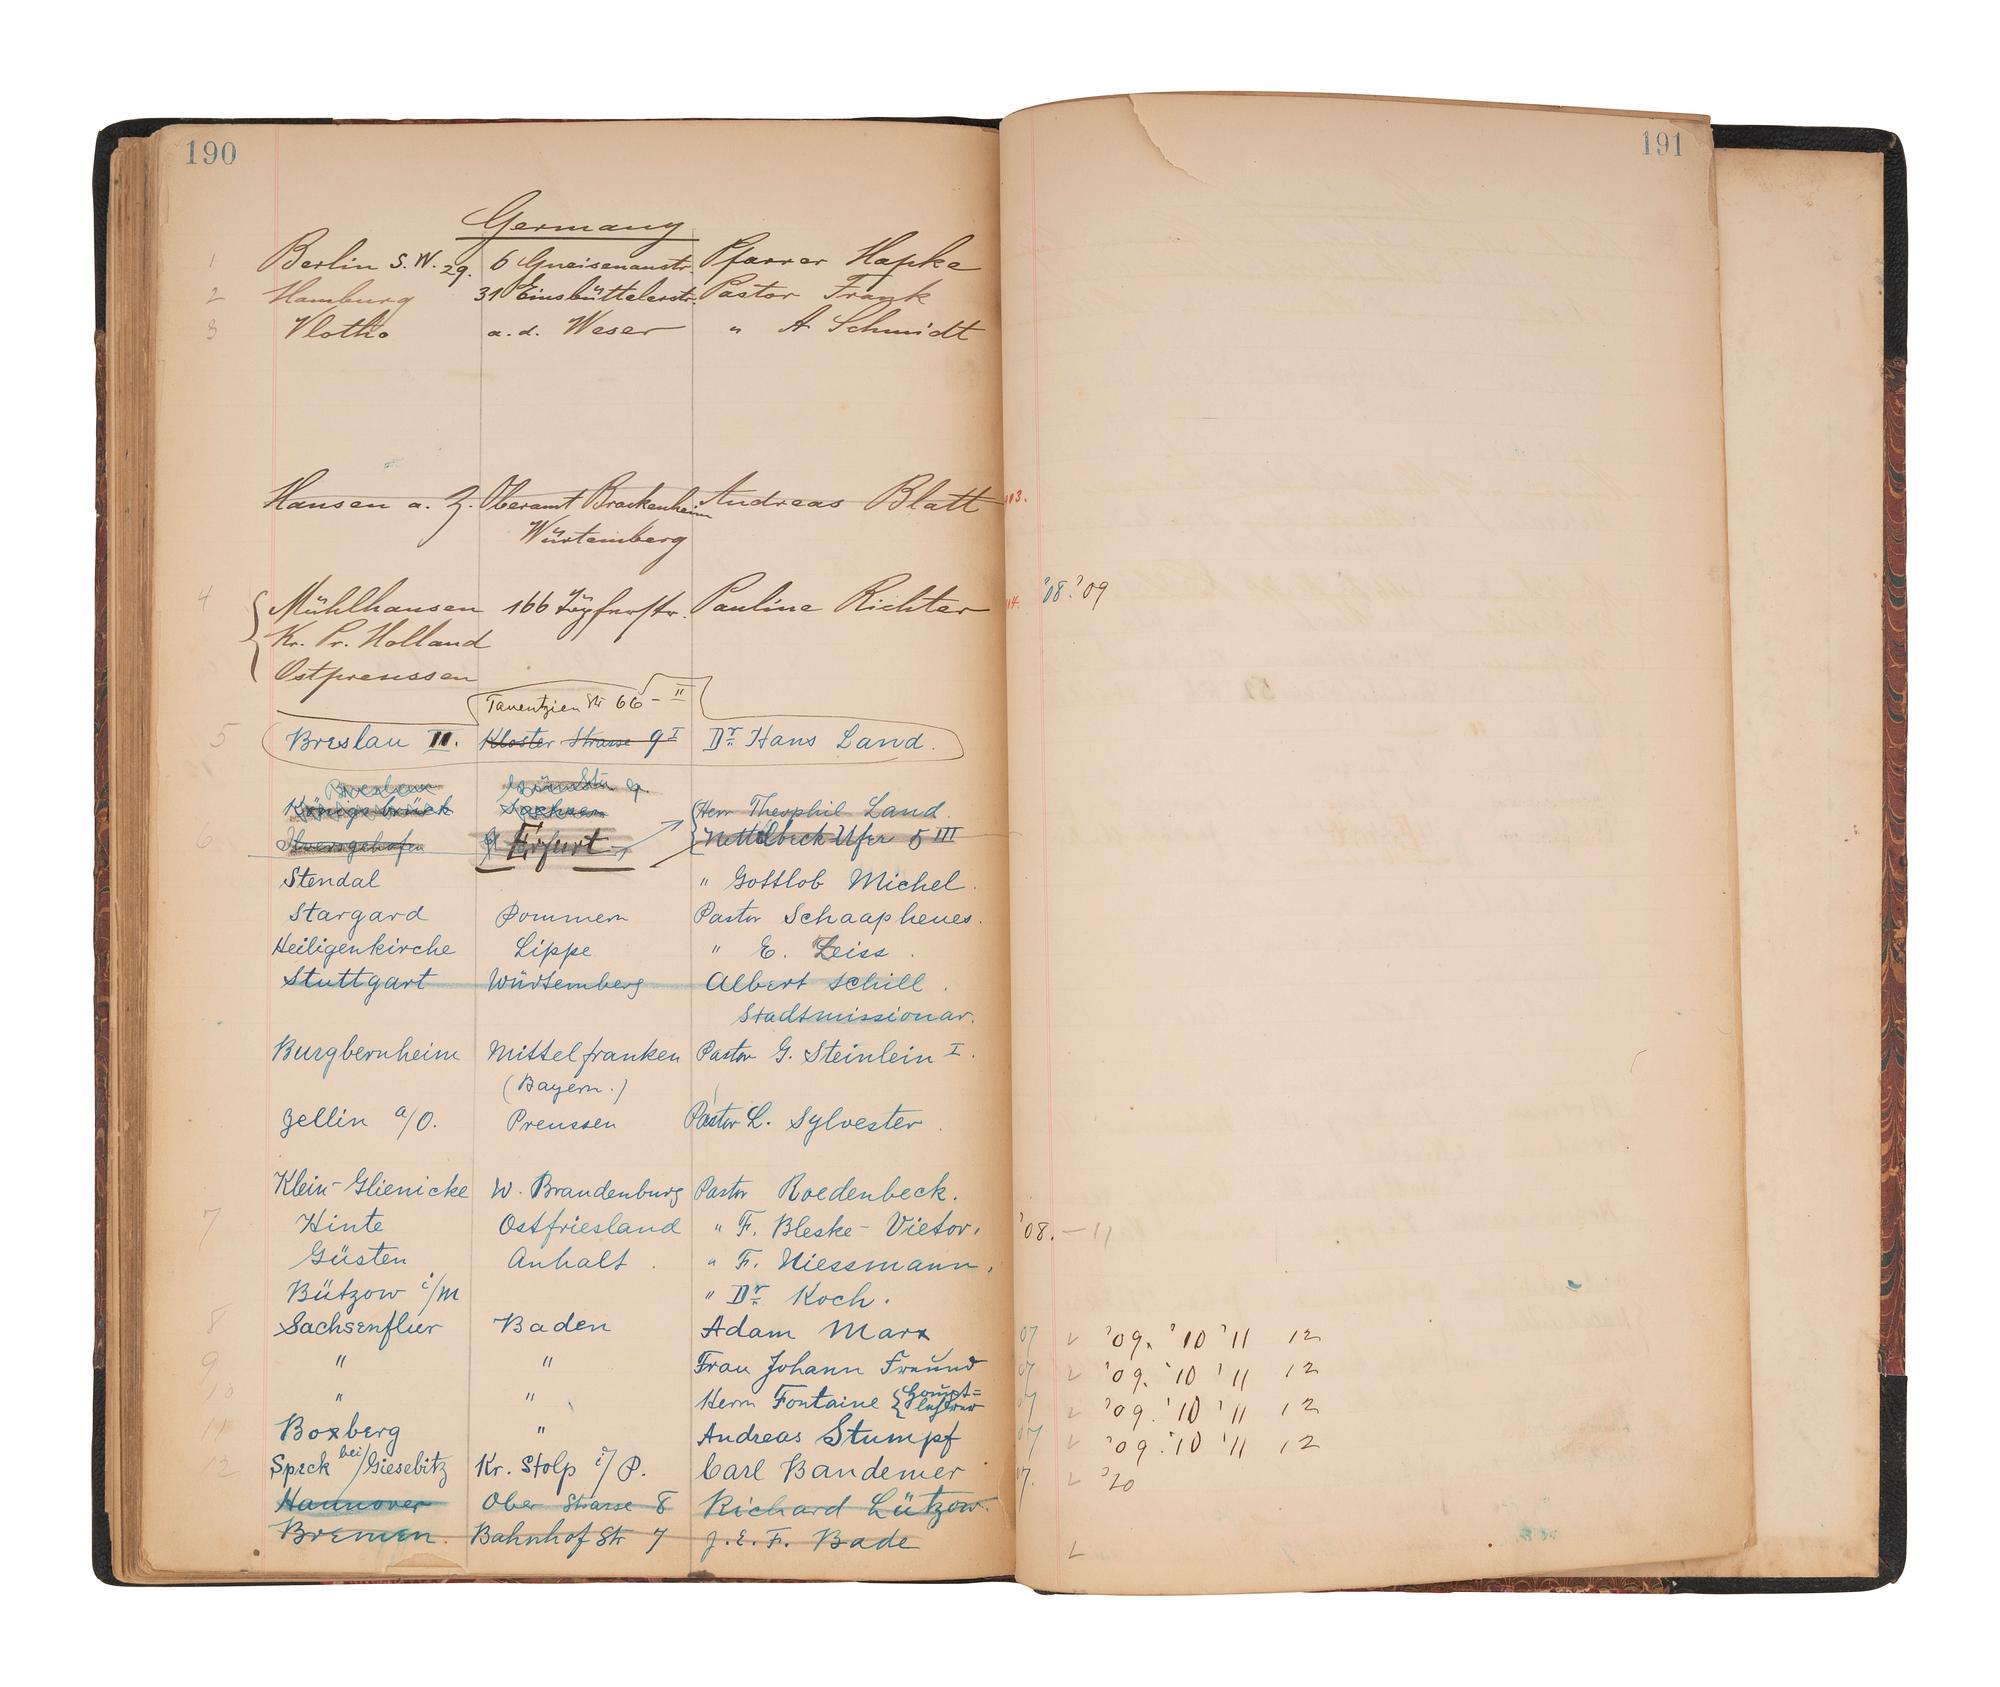 190
191
Germany
1 Berlin S.W. 29. 6 Gneisenaustr. Pfarrer Hapke
2 Hamburg 31 Eimsbüttelerstr. Pastor Frank
3 Vlotho a.d. Weser " A Schmidt
Hausen a. Z. Oberamt Brackenheim Andreas Blatt 113.
Würtemberg
4 Mühlhausen 166 Pauline Richter 114. '08. '09
Kr. Pr. Holland
Ostpreussen
Tauentzien Str 66 - II
5 Breslau II. Kloster Strasse 9 I Dr. Hans Land.
Breslau
Königsbrück Sachsen Herr Theophil Land.
6 Ilversgehofen Erfurt Nettelbeck Ufer 5 III
Stendal " Gottlob Michel.
Stargard Pommern Pastor Schaapheues.
Heiligenkirche Lippe " E. Zeiss.
Stuttgart Würtemberg Albert Schill.
Stadtmissionar.
Burgbernheim Mittelfranken Pastor G. Steinlein I.
(Bayern.)
Zellin a/O. Preussen Pastor L. Sylvester.
Klein-Glienicke W. Brandenburg Pastor Roedenbeck.
7 Hinte Ostfriesland " F. Bleske-Vietor. '08. - 11
Güsten Anhalt. " F. Niessmann.
Bützow i/M " Dr. Koch.
8 Sachsenflur Baden Adam Marx 07 '09. '10 '11 12
9 " " Frau Johann Freund 07 '09. '10 '11 12
10 " " Herrn Fontaine {Haupt= 07 '09. '10 '11 12
lehrer
11 Boxberg " Andreas Stumpf 07 '09. '10 '11 12
12 Speck bei/Giesebitz Kr. Stolp i/P. Carl Bandemer 07. '20
Hannover Ober Strasse 8 Richard Lützow.
Bremen. Bahnhof Str 7 J. E. F. Bade